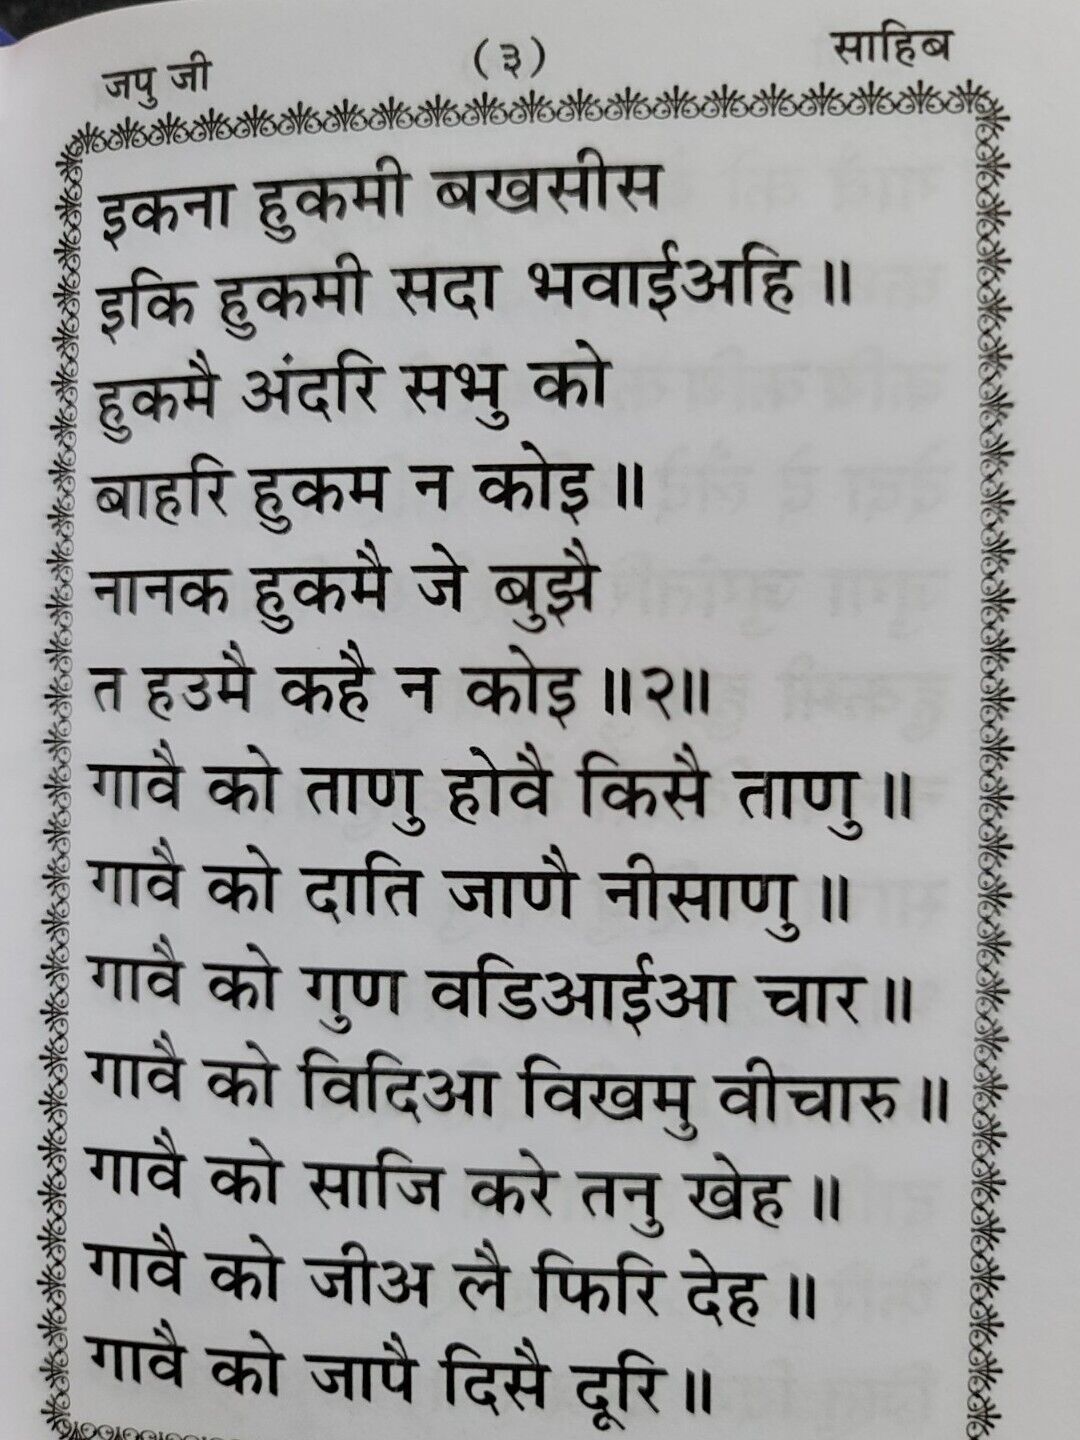 जपु जी (३) साहिब
इकना हुकमी बखसीस
इकि हुकमी सदा भवाईअहि ॥
हुकमै अंदरि सभु को
बाहरि हुकम न कोइ ॥
नानक हुकमै जे बुझै
त हउमै कहै न कोइ ॥२॥
गावै को ताणु होवै किसै ताणु ॥
गावै को दाति जाणै नीसाणु ॥
गावै को गुण वडिआईआ चार ॥
गावै को विदिआ विखमु वीचारु ॥
गावै को साजि करे तनु खेह ॥
गावै को जीअ लै फिरि देह ॥
गावै को जापै दिसै दूरि ॥